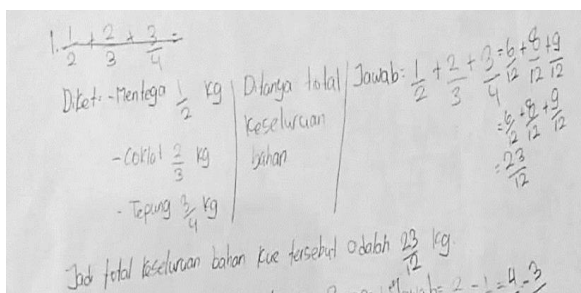 1. 1/2 + 2/3 + 3/4 =
Diket: - Mentega 1/2 kg
- Coklat 2/3 kg
- Tepung 3/4 kg
Ditanya total
keseluruan
bahan
Jawab: 1/2 + 2/3 + 3/4 = 6/12 + 8/12 + 9/12
= 6/12 + 8/12 + 9/12
= 23/12
Jadi total keseluruan bahan kue tersebut adalah 23/12 kg.
2 - 1 = 4 - 3